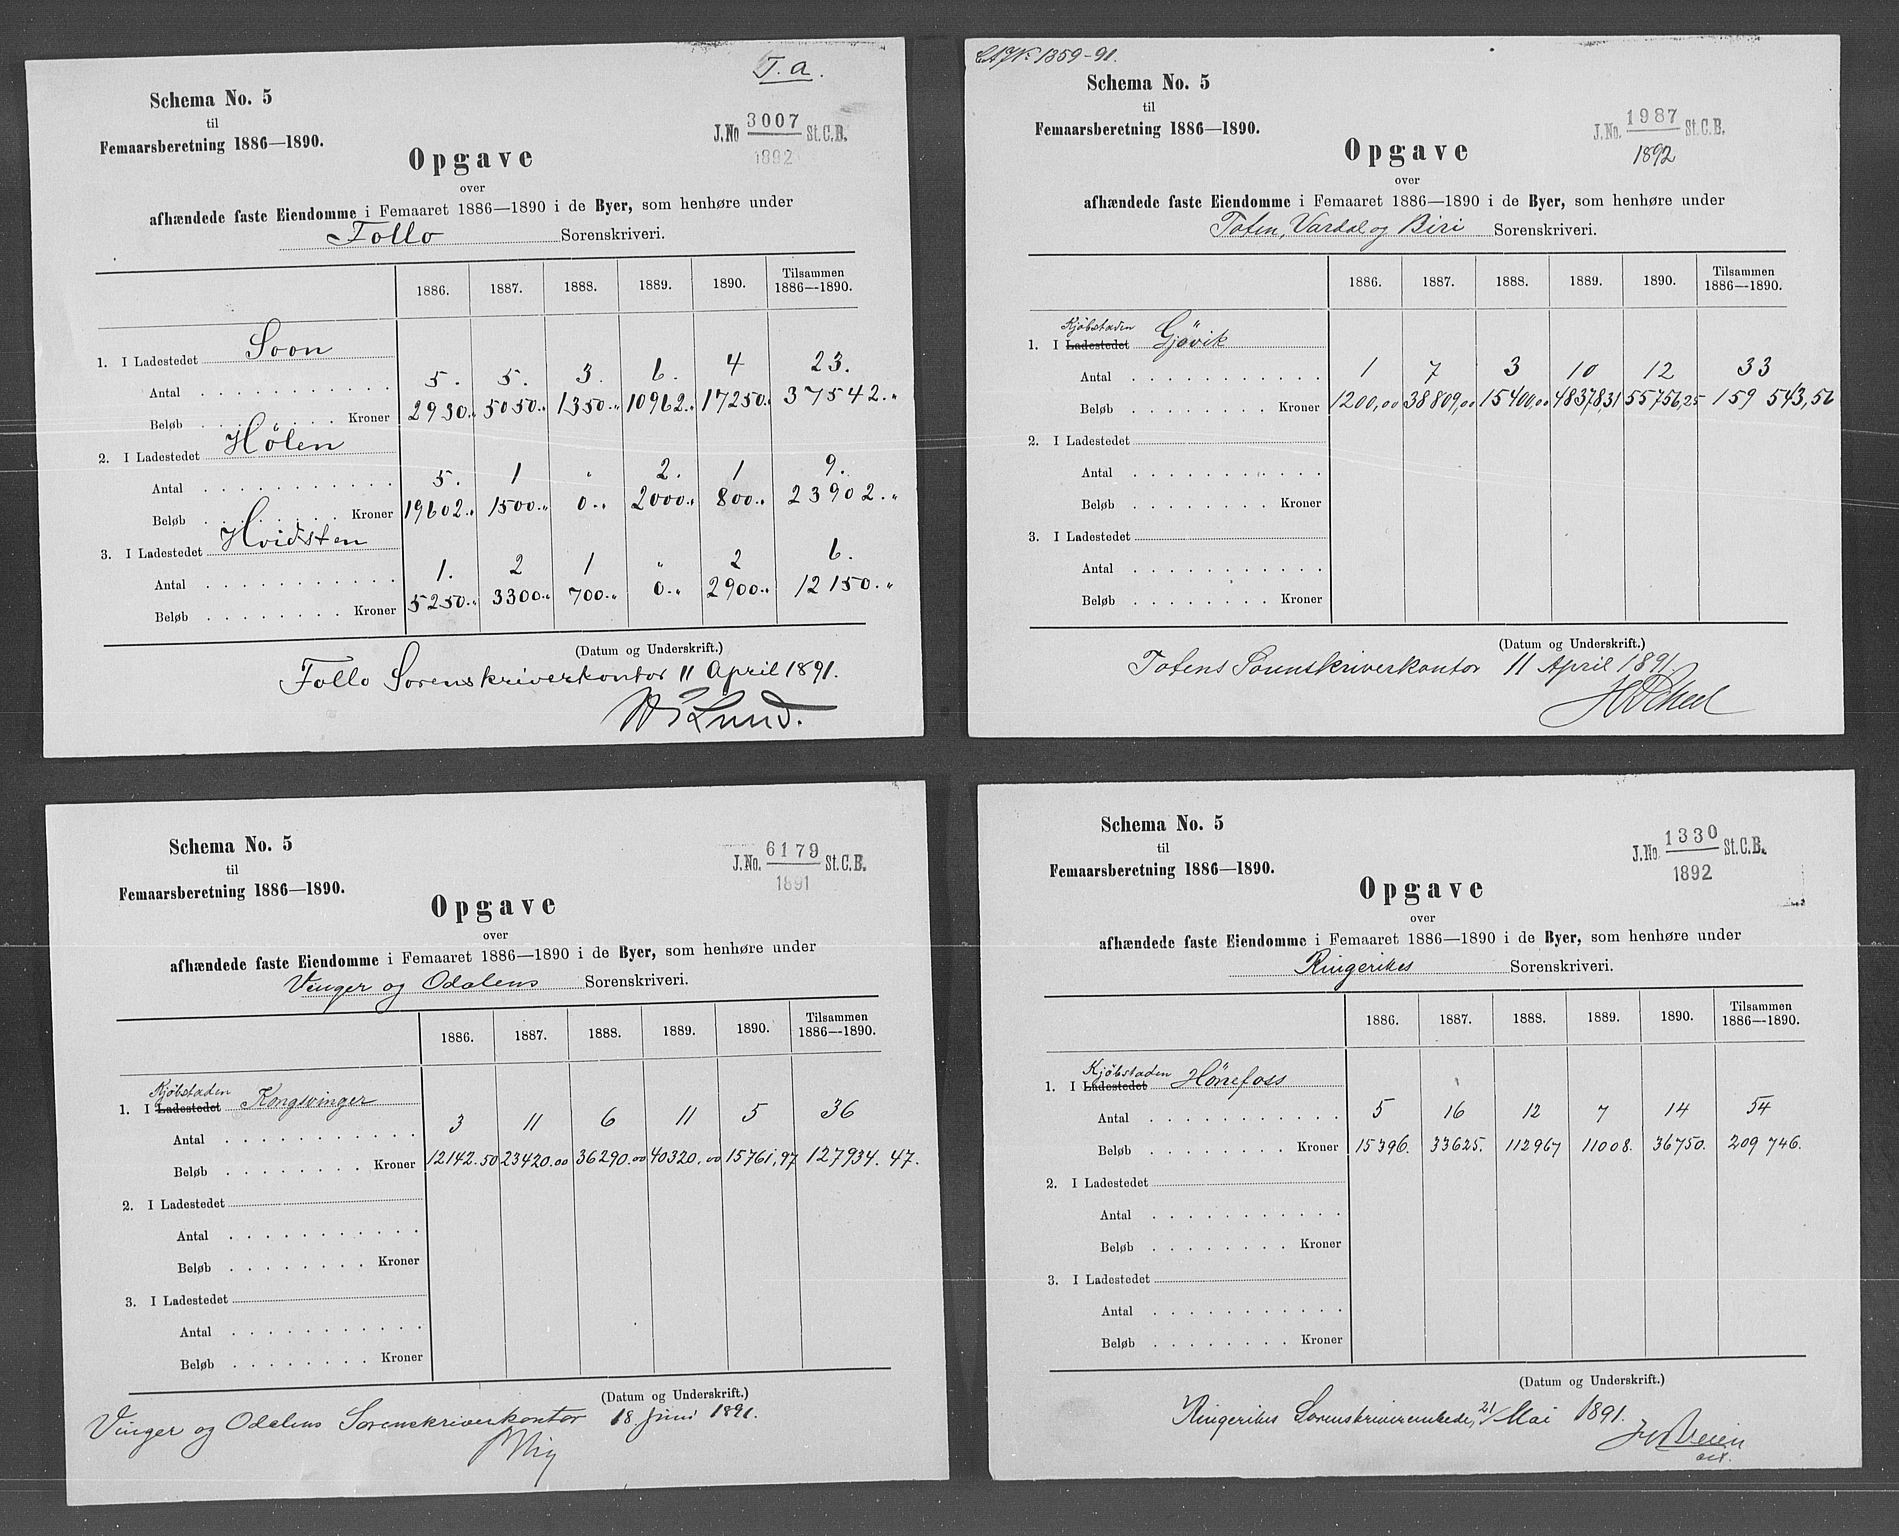 T. a.
Schema No. 5
til
Femaarsberetning 1886—1890.
J.No 3007 St.C.B.
1892
Opgave
over
afhændede faste Eiendomme i Femaaret 1886—1890 i de Byer, som henhøre under
Follo Sorenskriveri.
1886. 1887. 1888. 1889. 1890. Tilsammen 1886—1890.
1. I Ladestedet Soon
Antal 5. 5. 3. 6. 4 23.
Beløb Kroner 2930.„ 5050.„ 1350.„ 10962.„ 17250.„ 37542.„
2. I Ladestedet Hølen
Antal 5. 1 „ 2. 1 9.
Beløb Kroner 19602.„ 1500.„ 0.„ 2000.„ 800.„ 23902.„
3. I Ladestedet Hvidsten
Antal 1. 2 1 „ 2 6.
Beløb Kroner 5250.„ 3300.„ 700.„ 0.„ 2900.„ 12150.„
(Datum og Underskrift.)
Follo Sorenskriverkontor 11 April 1891.
Lund.
No 1359-91.
Schema No. 5
til
Femaarsberetning 1886—1890.
J.No. 1987 St.C.B.
1892
Opgave
over
afhændede faste Eiendomme i Femaaret 1886—1890 i de Byer, som henhøre under
Toten, Vardal og Biri Sorenskriveri.
1886. 1887. 1888. 1889. 1890. Tilsammen 1886—1890.
Kjöbstaden
1. I Ladestedet Gjövik
Antal 1 7 3 10 12 33
Beløb Kroner 1200,00 38809,00 15400,00 48378,31 55756,25 159 543,56
2. I Ladestedet
Antal
Beløb Kroner
3. I Ladestedet
Antal
Beløb Kroner
(Datum og Underskrift.)
Totens Sorenskriverkontor 11 April 1891
Schema No. 5
til
Femaarsberetning 1886—1890.
J.No. 6179 St.C.B.
1891
Opgave
over
afhændede faste Eiendomme i Femaaret 1886—1890 i de Byer, som henhøre under
Vinger og Odalens Sorenskriveri.
1886. 1887. 1888. 1889. 1890. Tilsammen 1886—1890.
Kjöbstaden
1. I Ladestedet Kongsvinger
Antal 3 11 6 11 5 36
Beløb Kroner 12142.50 23420.00 36290.00 40320,00 15761,97 127934.47.
2. I Ladestedet
Antal
Beløb Kroner
3. I Ladestedet
Antal
Beløb Kroner
(Datum og Underskrift.)
Vinger og Odalens Sorenskriverkontor 18 Juni 1891.
Schema No. 5
til
Femaarsberetning 1886—1890.
J.No. 1330 St.C.B.
1892
Opgave
over
afhændede faste Eiendomme i Femaaret 1886—1890 i de Byer, som henhøre under
Ringerikes Sorenskriveri.
1886. 1887. 1888. 1889. 1890. Tilsammen 1886—1890.
Kjöbstaden
1. I Ladestedet Hönefoss
Antal 5 16 12 7 14 54
Beløb Kroner 15396. 33625. 112967 11008. 36750. 209 746.
2. I Ladestedet
Antal
Beløb Kroner
3. I Ladestedet
Antal
Beløb Kroner
(Datum og Underskrift.)
Ringerikes Sorenskriverembede, 21/ Mai 1891.